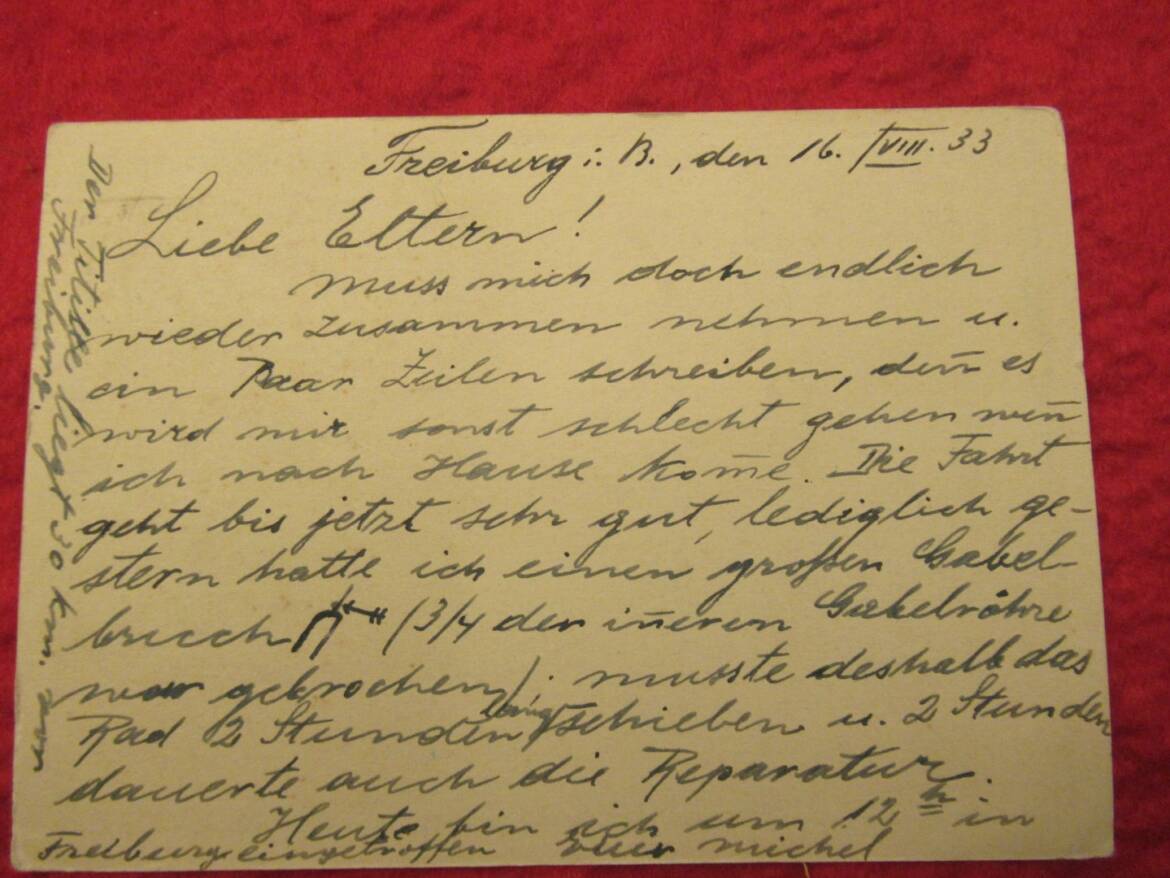 Freiburg i. B., den 16. VIII. 33
Liebe Eltern!
Muss mich doch endlich
wieder zusammen nehmen u.
ein Paar Zeilen schreiben, den̄ es
wird mir sonst schlecht gehen wen̄
ich nach Hause kom̄e. Die Fahrt
geht bis jetzt sehr gut, lediglich ge-
stern hatte ich einen großen Gabel-
bruch (3/4 der in̄eren Gabelröhre
war gebrochen); musste deshalb das
Rad 2 Stunden lang schieben u. 2 Stunden
dauerte auch die Reparatur.
Heute bin ich um 12 h in
Freiburg eingetroffen Euer Michel
Der Titisee liegt 30 km. vor
Freiburg.